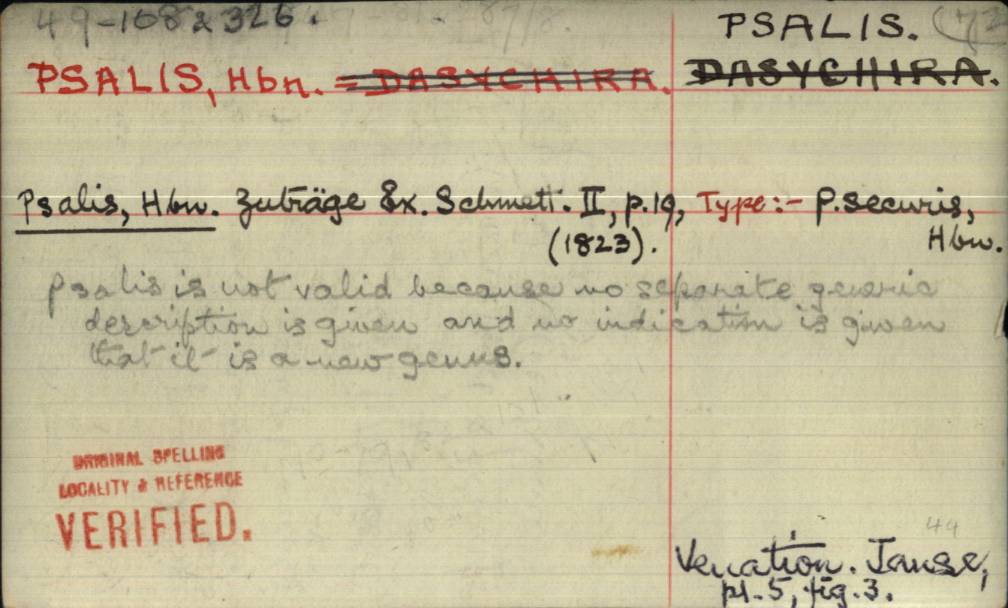 49-108 & 326.
PSALIS.
PSALIS, Hbn. = DASYCHIRA. DASYCHIRA.
Psalis, Hbn. Zuträge Ex. Schmett. II, p.19, Type:- P. securis,
(1823). Hbn.
Psalis is not valid because no separate generic
description is given and no indication is given
that it is a new genus.
ORIGINAL SPELLING
LOCALITY & REFERENCE
VERIFIED.
44
Venation. Janse,
pl. 5, fig. 3.